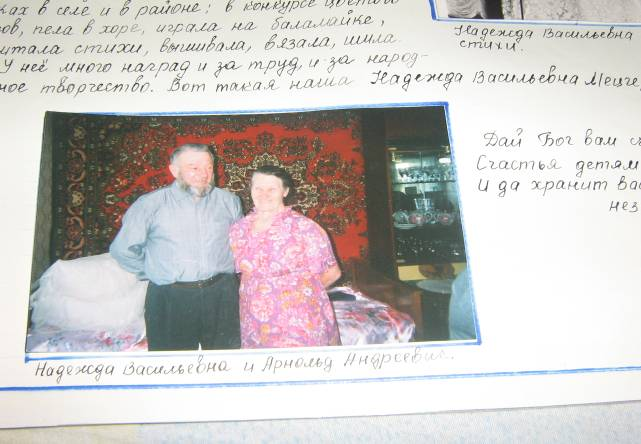 ках в селе и в районе; в конкурсе цветов
ов, пела в хоре, играла на балалайке,
читала стихи, вышивала, вязала, шила.
У неё много наград и за труд, и за народ-
ное творчество. Вот такая наша Надежда Васильевна Мецге
Надежда Васильевна
стихи.
Дай Бог вам
Счастья детям
И да хранит вас
нез
Надежда Васильевна и Арнольд Андреевич.